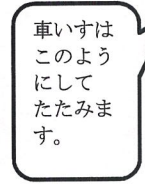 車いすは
このよう
にして
たたみま
す。